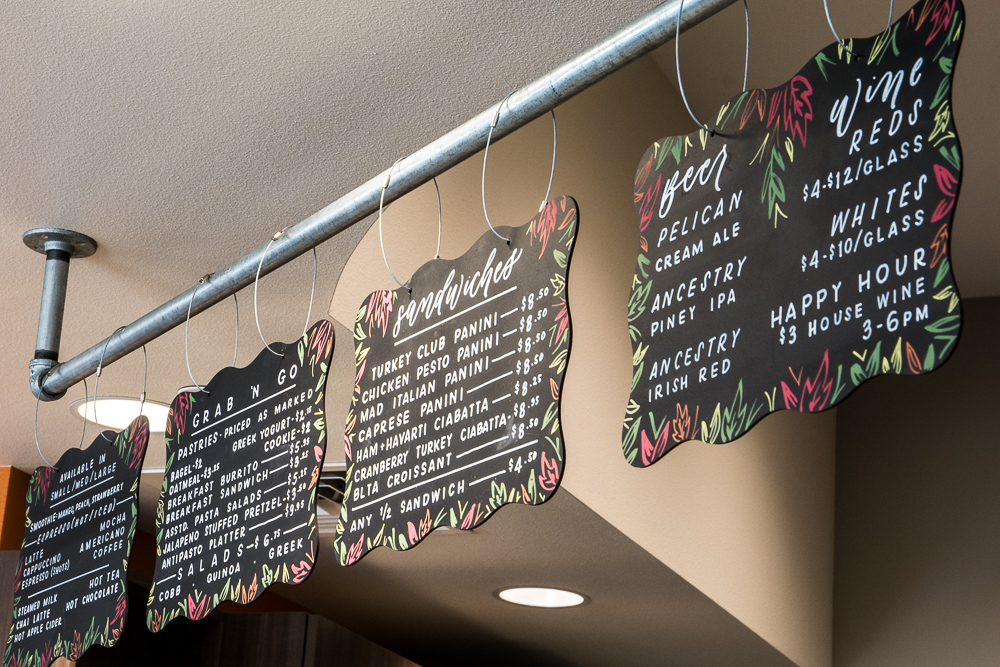 AVAILABLE IN
SMALL/MED/LARGE
SMOOTHIE-MANGO, PEACH, STRAWBERRY
ESPRESSO (HOT/ICED)
MOCHA
LATTE AMERICANO
CAPPUCCINO COFFEE
ESPRESSO (SHOTS)
HOT TEA
STEAMED MILK HOT CHOCOLATE
CHAI LATTE
HOT APPLE CIDER
GRAB 'N GO
PASTRIES-PRICED AS MARKED
BAGEL-$2 GREEK YOGURT-$2.75
OATMEAL-$3.25 COOKIE-$2
BREAKFAST BURRITO
BREAKFAST SANDWICH
ASSTD. PASTA SALADS
JALAPENO STUFFED PRETZEL-$3.50
ANTIPASTO PLATTER $9.95
SALADS-$6.75
COBB QUINOA GREEK
sandwiches
TURKEY CLUB PANINI $8.50
CHICKEN PESTO PANINI $8.50
MAD ITALIAN PANINI $8.50
CAPRESE PANINI $8.50
HAM+HAVARTI CIABATTA $8.25
CRANBERRY TURKEY CIABATTA-$8.95
BLTA CROISSANT $8.50
ANY ½ SANDWICH $4.50
Beer
PELICAN
CREAM ALE
ANCESTRY
PINEY IPA
ANCESTRY
IRISH RED
Wine
REDS
$4-$12/GLASS
WHITES
$4-$10/GLASS
HAPPY HOUR
$3 HOUSE WINE
3-6PM